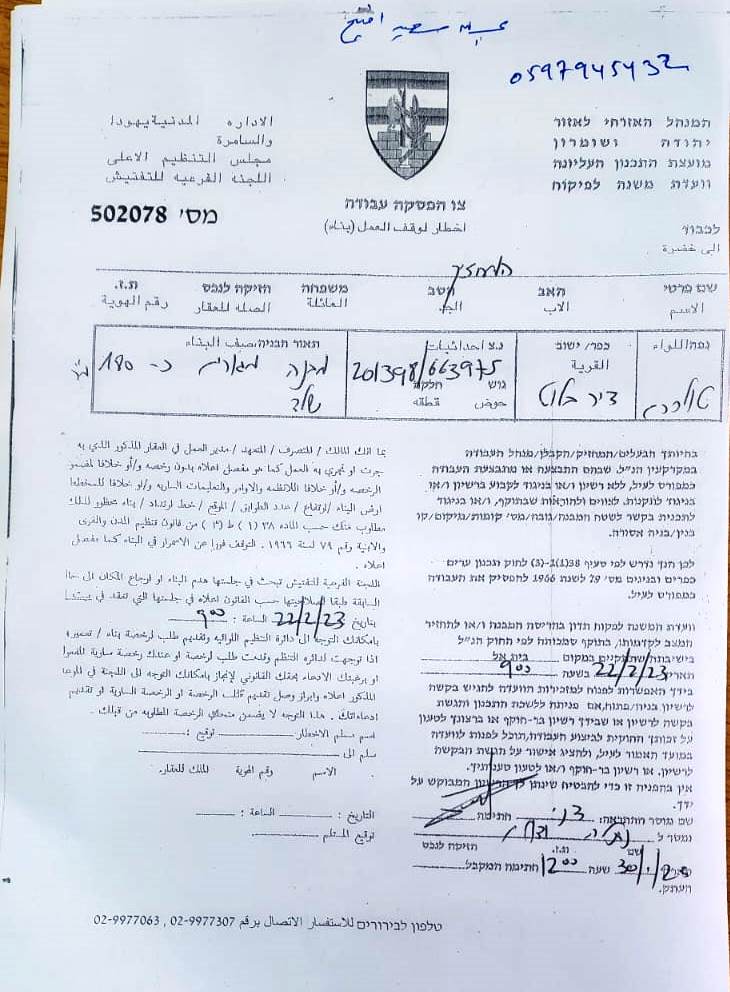 عبد الله سمير افتيح
0597945432
המנהל האזרחי לאזור
יהודה ושומרון
מועצת התכנון העליונה
וועדת משנה לפיקוח
الاداره المدنية يهودا
والسامرة
مجلس التنظيم الاعلى
اللجنه الفرعيه للتفتيش
צו הפסקה עבודה
اخطار لوقف العمل (بناء)
מס' 502078
לכבוד
الى حضرة
המחזיק
שם פרטי האב הסב משפחה חזיקה לנכס ת.ז.
الاسم الاب الجد العائلة الصله للعقار رقم الهوية
נפה اللواء כפר/ ישוב נ.צ احداثيات תאור הבניה وصف البناء
القرية 201398/663975 מבנה מגורים כ- 180 מ"ר
טולכרם דיר בלוט גוש חלקה
حوض قطعه שלד
בהיותך הבעלים/המחזיק/הקבלן/מנהל העבודה
במקרקעין הנ"ל, שבהם התבצעה או מתבצעת העבודה
כמפורט לעיל, ללא רשיון ו/או בניגוד לקבוע ברשיון ו/או
בניגוד לתקנות, לצווים ולהוראות שבתוקף, ו/או בניגוד
לתכנית בקשר לשטח המבנה/גובה/מס' קומות/מיקום/קו
בנין/בניה אסורה.
לכן הנך נדרש לפי סעיף 38(1)-(3) לחוק תכנון ערים
כפרים ובנינים מס' 79 לשנת 1966 להפסיק את העבודה
כמפורט לעיל.
וועדת המשנה לפקוח תדון בהריסת המבנה ו/או להחזיר
המצב לקדמותו, בתוקף סמכותה לפי החוק הנ"ל
בישיבתה שתתקיים במקום בית אל
תאריך 22/2/23 בשעה 9:00
בידך האפשרות לפנות למזכירות הוועדה להגיש בקשה
לרשיון בניה/פתוח, אם פנית ללשכת התכנון והגשת
בקשה לרשיון או שבידך רשיון בר-תוקף או ברצונך לטעון
על זכותך החוקית לביצוע העבודה, תוכל לפנות לוועדה
במועד האמור לעיל, ולהציג אישור על הגשת הבקשה
לרשיון, או רשיון בר-תוקף ו/או לטעון טענותיך.
אין בהפניה זו כדי להבטיח שינתן לך הרשיון המבוקש על
ידך.
שם מוסר ההתראה: חתימה
נמסר ל
שם ת.ז. חזיקה לנכס
30/1/23 שעה 12:00 חתימת המקבל
העתק.
بما انك المالك / المتصرف / المتعهد / مدير العمل في العقار المذكور الذي به
جرت او تجري به العمل كما هو مفصل اعلاه بدون رخصه و/أو خلافا لمضمون
الرخصه و/أو خلافا للانظمه والاوامر والتعليمات الساريه و/او خلافا للمخطط
ارض البناء /ارتفاع / عدد الطوابق / الموقع / خط ارتداد / بناء محظور لذلك
مطلوب منك حسب الماده ٣٨ (١) ط (٣) من قانون تنظيم المدن والقرى
والابنية رقم ٧٩ لسنة ١٩٦٦ . التوقف فورا عن الاستمرار في البناء كما مفصل
اعلاه .
اللجنة الفرعية للتفتيش تبحث في جلستها هدم البناء او ارجاع المكان الى حالته
السابقة طبقا لصلاحيتها حسب القانون اعلاه في جلستها التي تنعقد في
بتاريخ 22/2/23 الساعة : 9:00
بامكانك التوجه الى دائرة التنظيم اللوائيه وتقديم طلب لرخصة بناء /
اذا توجهت لدائره التنظم وقدمت طلب لرخصة او عندك رخصة سارية المفعول
او برغبتك الادعاء بحقك القانوني لإنجاز بإمكانك التوجه الى اللجنة في الموعد
المذكور اعلاه وابراز وصل تقديم طلب الرخصة او الرخصة السارية او تقديم
ادعاءاتك . هذا التوجه لا يضمن منحك الرخصة المطلوبه من قبلك .
اسم مسلم الاخطار توقيع :
سلم الى
الاسم رقم الهوية المالك للعقار.
التاريخ : الساعة :
توقيع المستلم
טלפון לבירורים للاستفسار الاتصال برقم 02-9977307 , 02-9977063